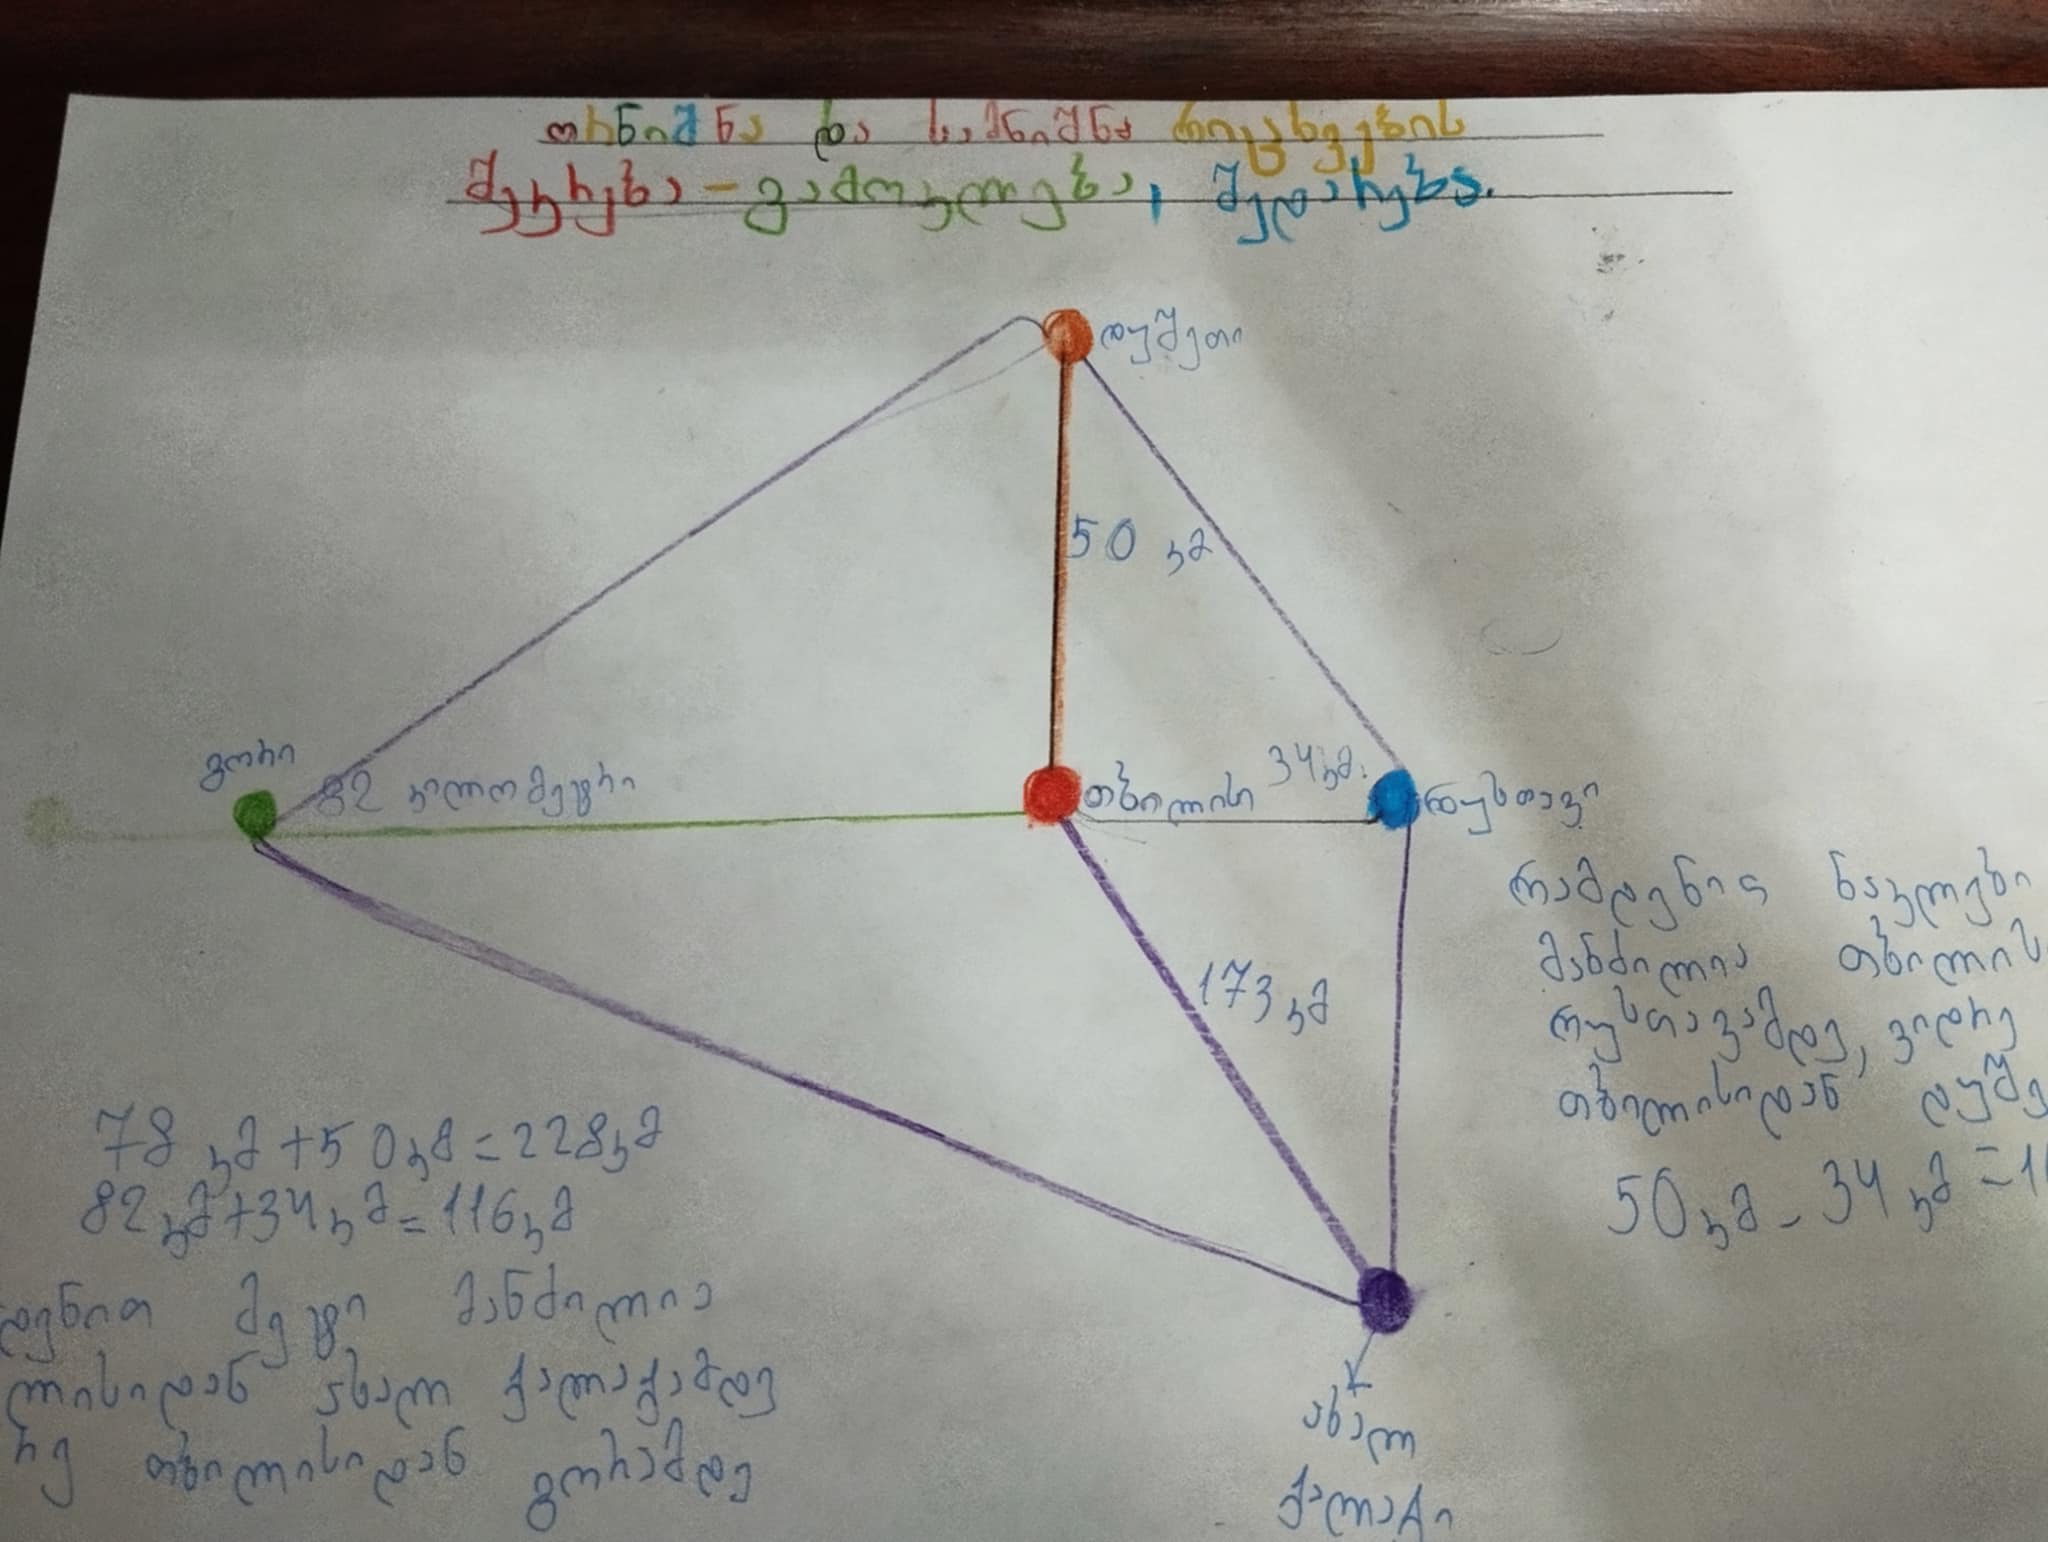 ორნიშნა და სამნიშნა რიცხვების
შეკრება-გამოკლება, შედარება.
დუშეთი
50 კმ
გორი
82 კილომეტრი
თბილისი
34კმ.
რუსთავი
173 კმ
რამდენით ნაკლები
მანძილია თბილის
რუსთავამდე, ვიდრე
თბილისიდან დუშე
50კმ - 34 კმ = 1
78 კმ + 50კმ = 228კმ
82კმ + 34კმ = 116კმ
დენით მეტი მანძილია
ლისიდან ახალ ქალაქამდე
რე თბილისიდან გორამდე
ახალ
ქალაქი